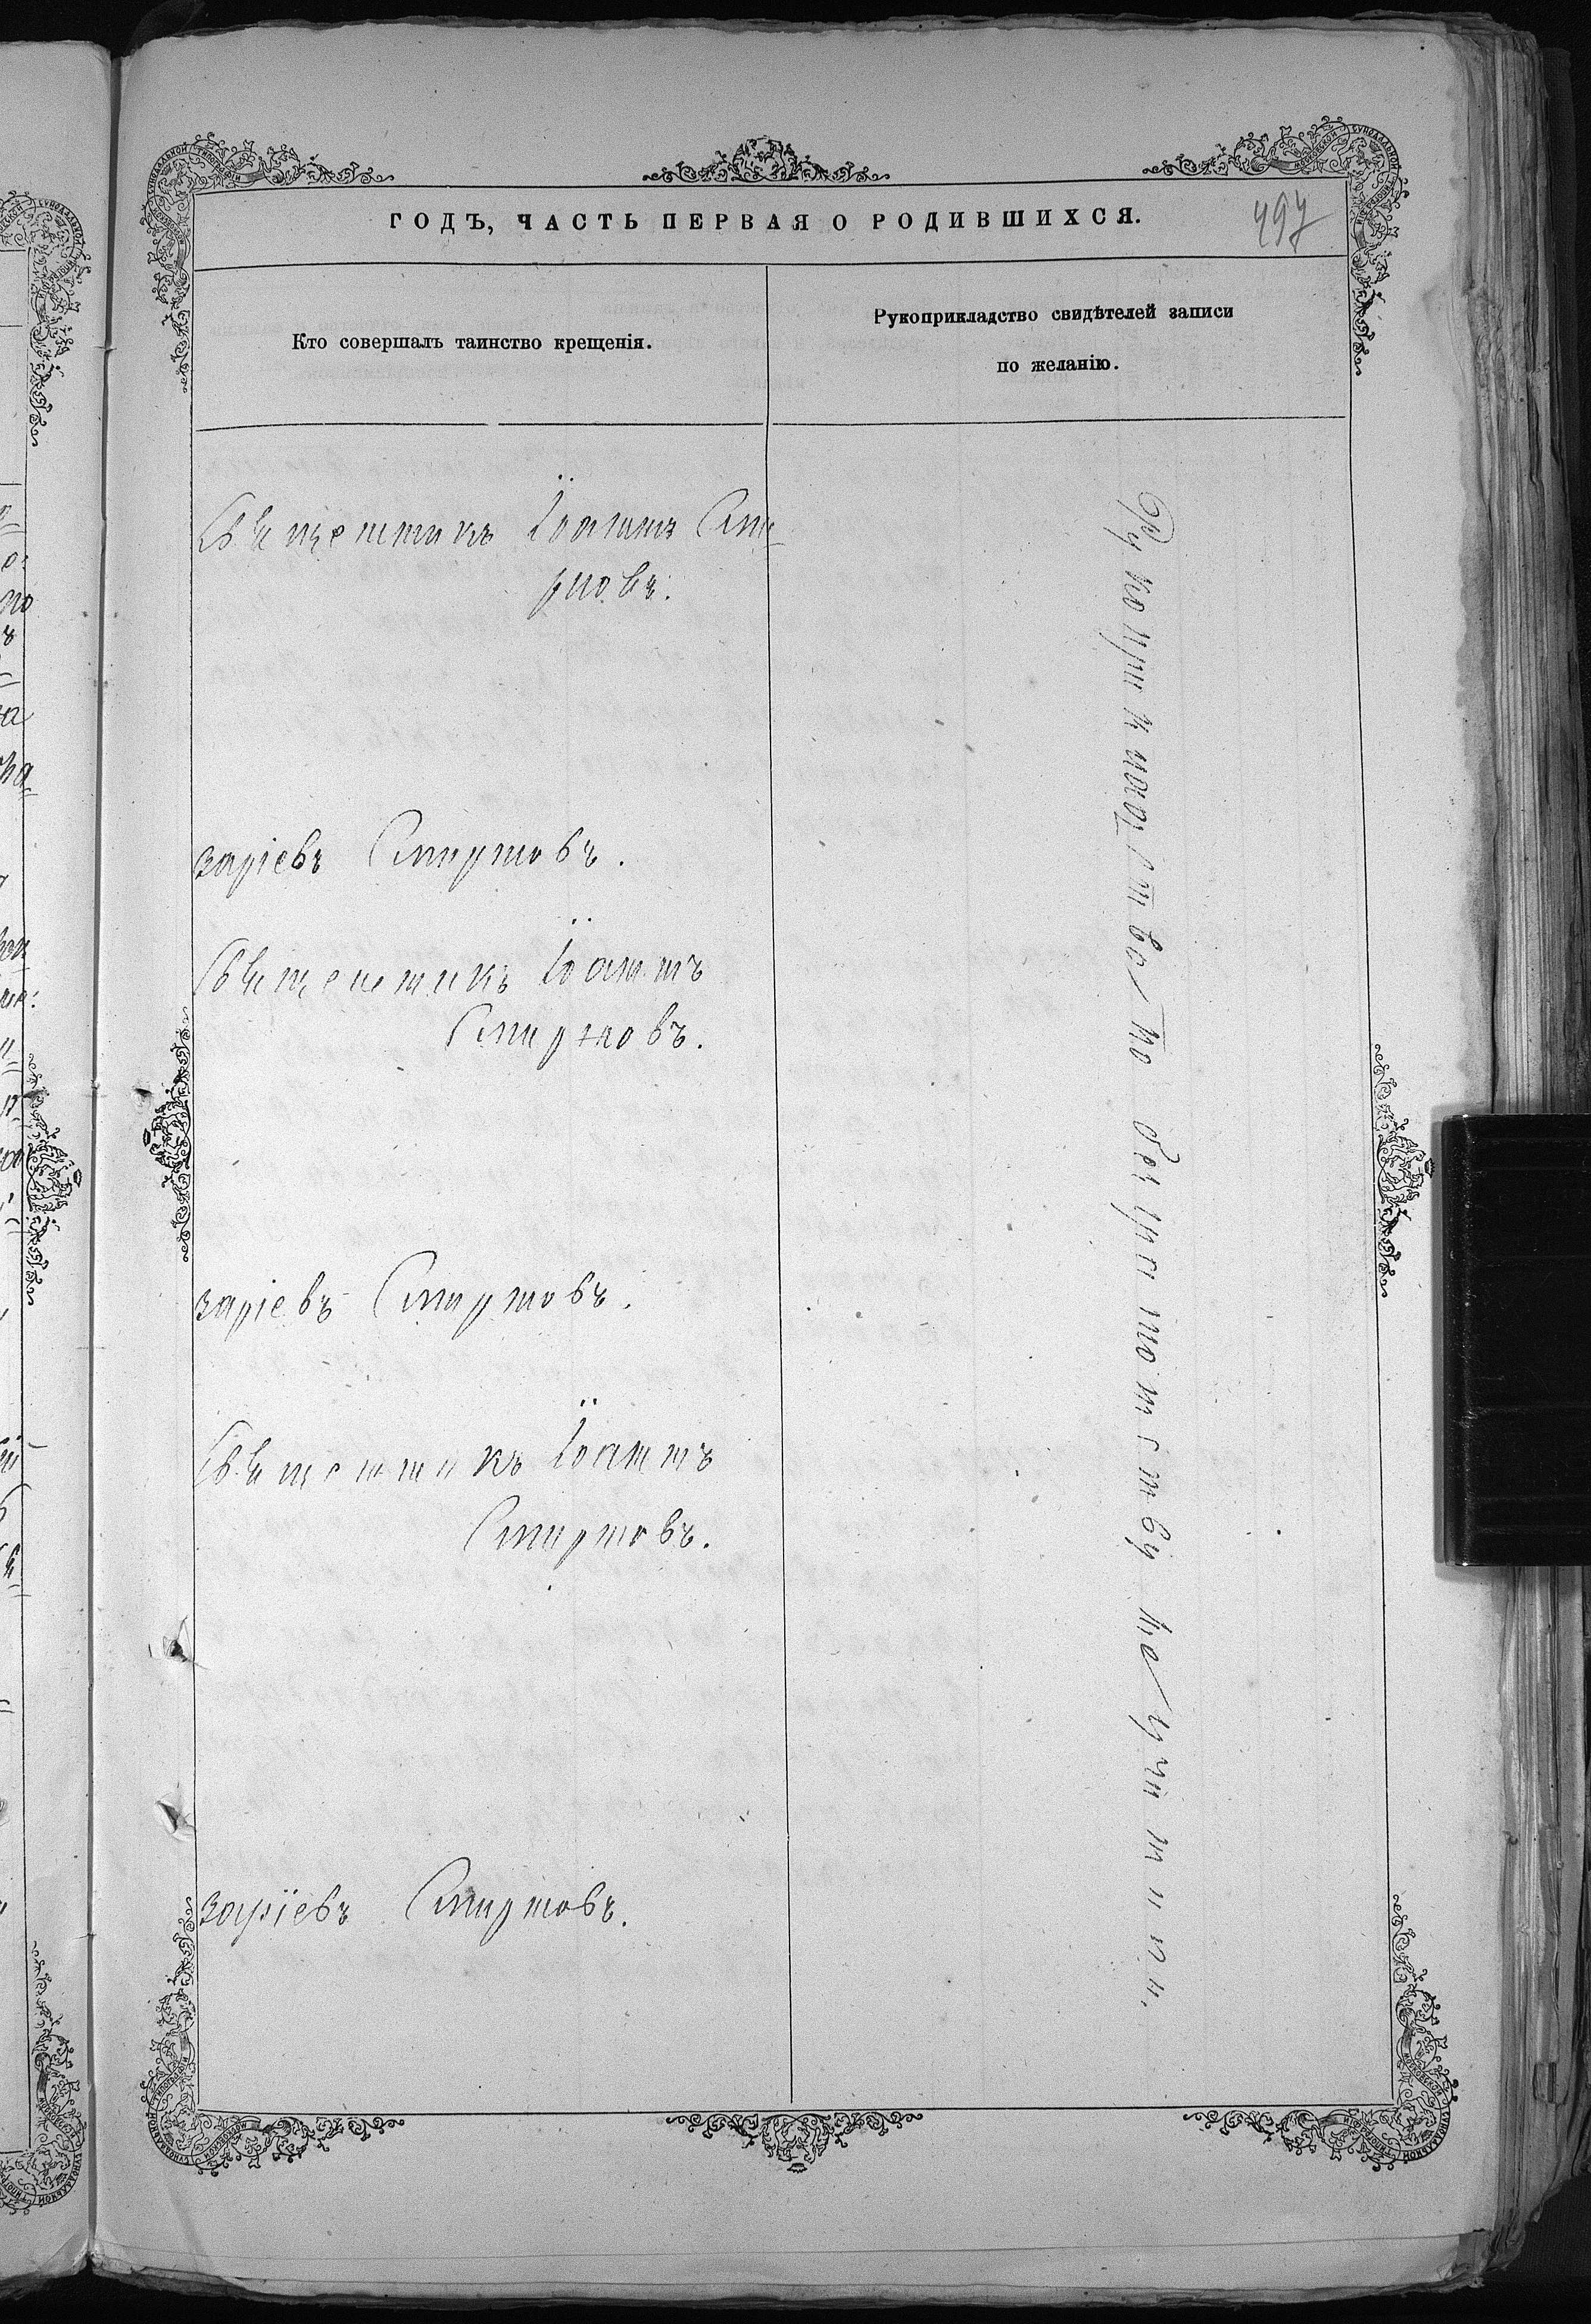 ГОДЪ, ЧАСТЬ ПЕРВАЯ О РОДИВШИХСЯ.
497
Кто совершалъ таинство крещенія.
Рукоприкладство свидѣтелей записи
по желанію.
Священникъ Іоаннъ Сми-
рновъ.
заріевъ Смирновъ.
Священникъ Іоаннъ
Смирновъ.
заріевъ Смирновъ.
Священникъ Іоаннъ
Смирновъ.
заріевъ Смирновъ.
Рукоприкладство по